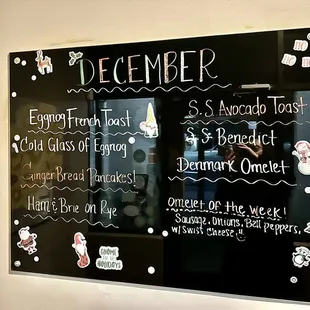 DECEMBER
Eggnog French Toast
Cold Glass Of Eggnog
GingerBread Pancakes!
Ham & Brie on Rye
S.S Avocado Toast
S.S Benedict
Denmark Omelet
Omelet of the week!
Sausage, Onions, Bell peppers,
w/ Swist Cheese
GNOME
FOR THE
HOLIDAYS
HO
HO